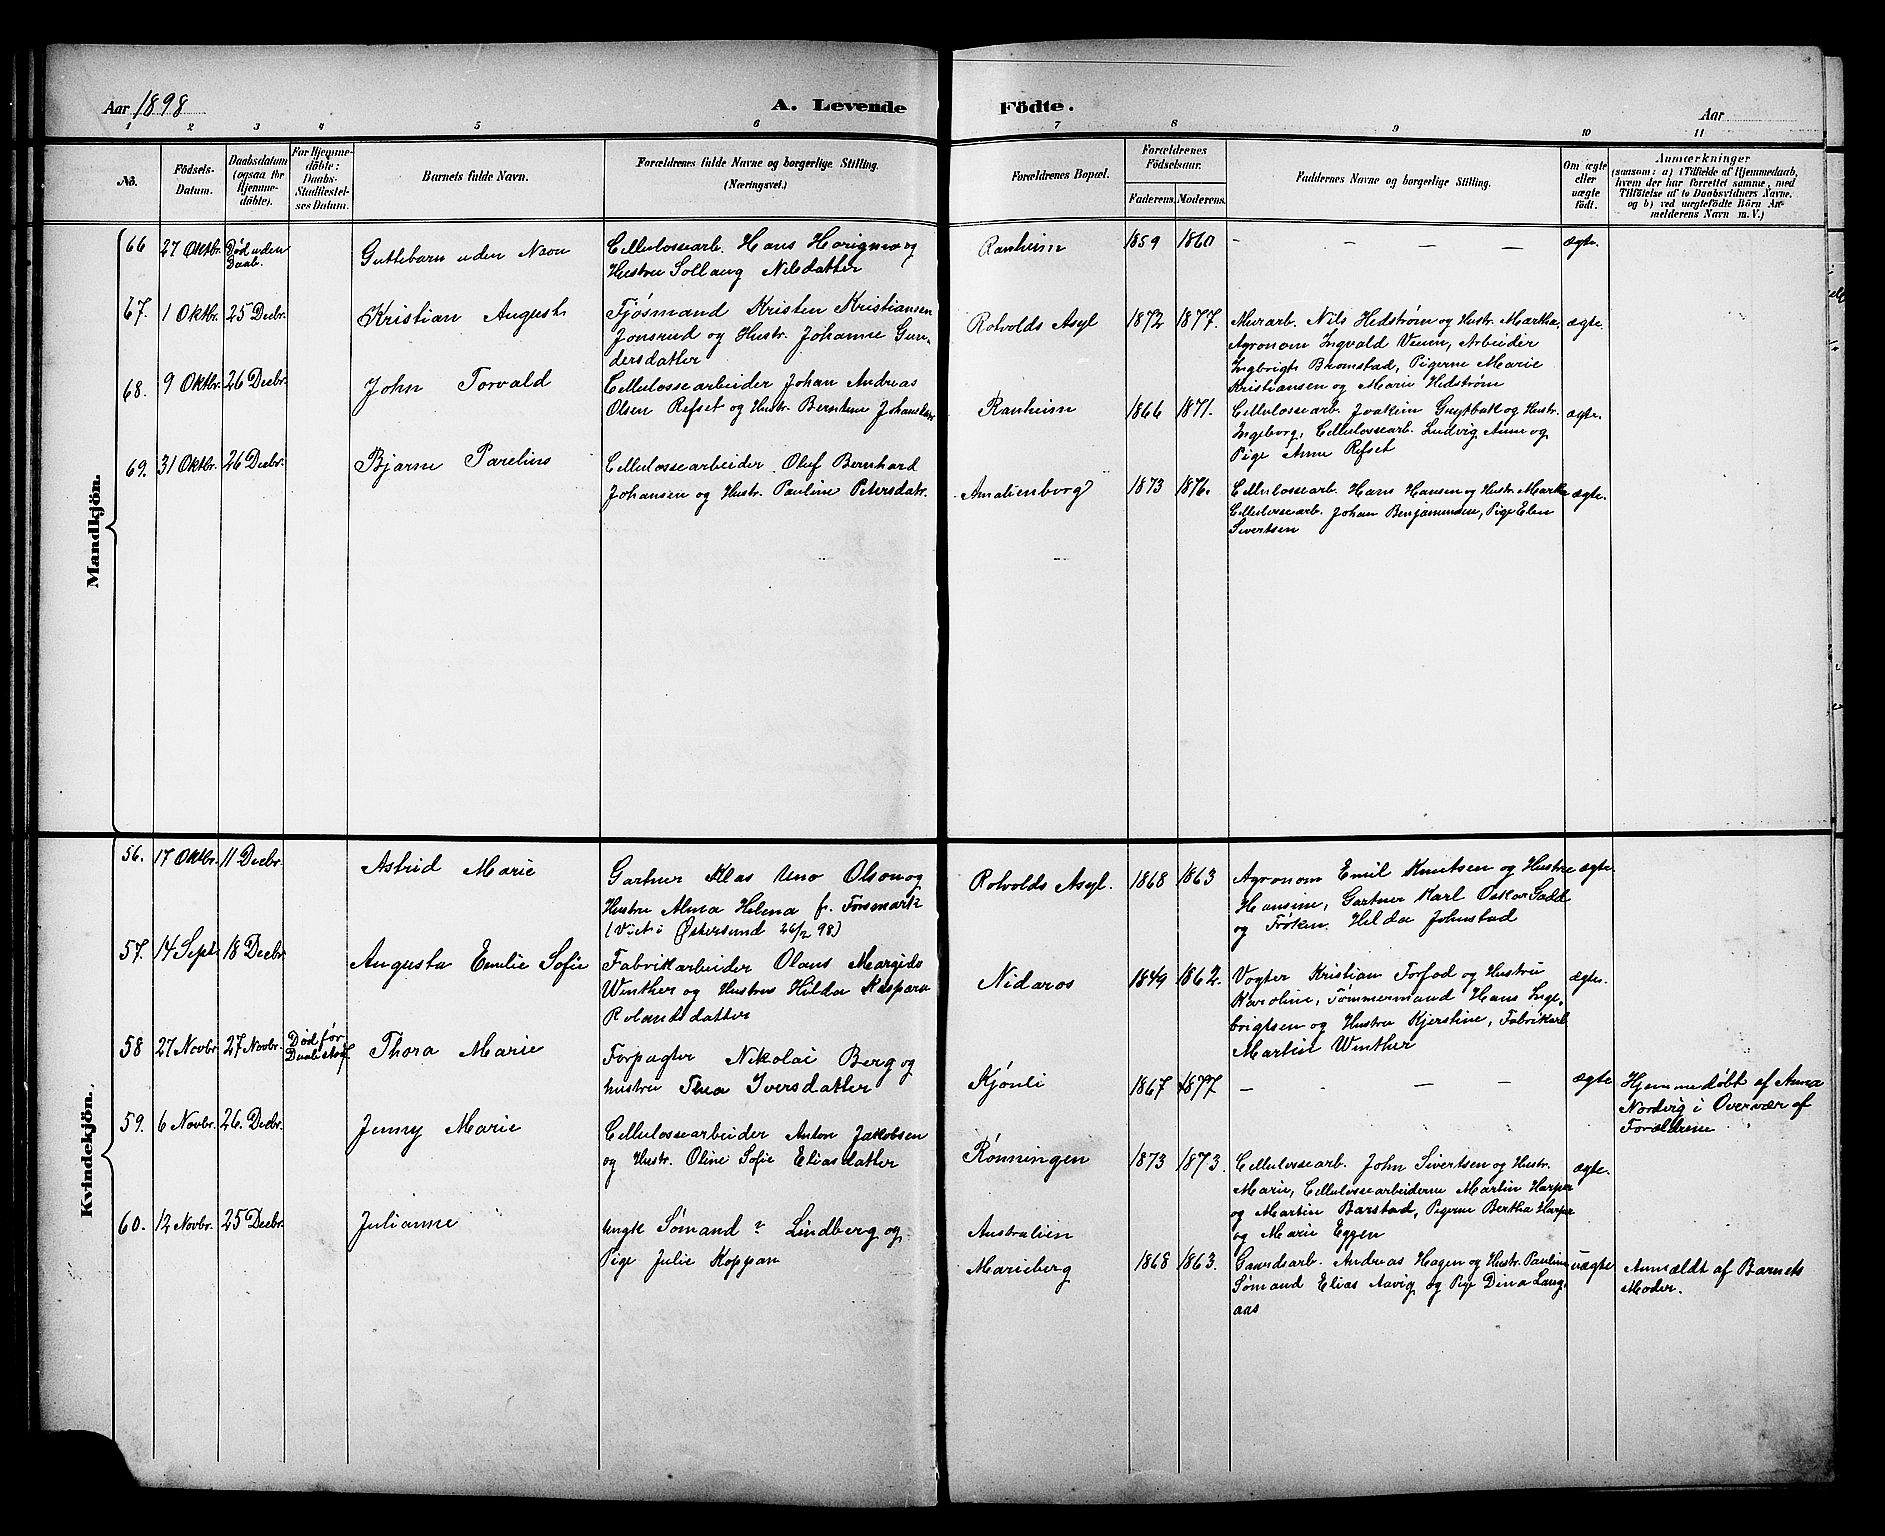 Aar 1898
A. Levende
Födte.
Aar
1 2 3 4 5 6 7 8 9 10 11
No.
Födsels-
Datum.
Daabsdatum
(ogsaa for
Hjemme-
döbte).
For Hjemme-
döbte:
Daabs-
Stadfæstel-
ses Datum.
Barnets fulde Navn.
Forældrenes fulde Navne og borgerlige Stilling.
(Næringsvei.)
Forældrenes Bopæl.
Forældrenes
Födselsaar.
Faderens. Moderens.
Faddernes Navne og borgerlige Stilling.
Om ægte
eller
uægte
födt.
Anmærkninger
(saasom: a) i Tilfælde af Hjemmedaab,
hvem der har forrettet samme, med
Tilföielse af to Daabsvidners Navne.
og b) ved uægtefödte Börn An-
melderens Navn m. V.)
Mandkjön.
66 27 Oktbr. Død uden
Daab.
Guttebarn uden Navn
Cellulossearb. Hans Haugmo og
Hustru Sollaug Nilsdatter
Ranheim
1859 1860 – – – – ægte.
67. 1 Oktbr. 25 Decbr.
Kristian August
Fjøsmand Kristen Kristiansen
Jonsrud og Hustr. Johanne Gun-
dersdatter
Rotvolds Asyl
1872 1877.
Murarb. Nils Hedstrøm og Hustr. Martha,
Agronom Ingvald Veum, Arbeider
Ingbrigt Bromstad, Pigerne Marie
Kristiansen og Marie Hedstrøm
ægte.
68. 9 Oktbr. 26 Decbr.
John Torvald
Cellulossearbeider Johan Andreas
Olsen Refset og Hustr. Berntine Johansdtr
Ranheim
1866 1871.
Cellulossearb. Joakim Grytbak og Hustr.
Ingeborg, Cellulossearb. Ludvig Aune og
Pige Anne Refset
ægte.
69. 31 Oktbr. 26 Decbr.
Bjarne Parelius
Cellulossearbeider Oluf Bernhard
Johansen og Hustr. Pauline Petersdatr.
Amalienborg
1873 1876.
Cellulossearb. Hans Hansen og Hustr. Martha
Cellulossearb. Johan Benjaminsen, Pige Elen
Sivertsen
ægte.
Kvindekjön.
56. 17 Oktbr. 11 Decbr.
Astrid Marie
Gartner Klas Uno Olson og
Hustru Alma Helena f. Forsmark
(Viet i Østersund 26/2 98)
Rotvolds Asyl.
1868 1863
Agronom Emil Knutsen og Hustru
Hansine, Gartner Karl Oskar Gadd
og Frøken Hilda Johnstad
ægte.
57. 14 Sept. 18 Decbr.
Augusta Emelie Sofie
Fabrikarbeider Olaus Margido
Winther og Hustru Hilda Kaspara
Rolandsdatter
Nidaros
1849 1862.
Vogter Kristian Forfod og Hustru
Karoline, Tømmermand Hans Inge-
brigtsen og Hustru Kjerstine, Fabrikarb.
Martin Winther
ægte.
58 27 Novbr. 27 Novbr. Død før
Daab. stadf.
Thora Marie
Forpagter Nikolai Berg og
hustru Thea Iversdatter
Kjønli
1867 1877 – – – – ægte
Hjemmedøbt af Anna
Nordvig i Overvær af
Forældrene
59. 6 Novbr. 26. Decbr.
Jenny Marie
Cellulossearbeider Anton Jakobsen
og Hustr. Oline Sofie Eliasdatter
Rønningen
1873 1873.
Cellulossearb. John Sivertsen og Hustr.
Marie, Cellulossearbeiderne Martin Harper
og Martin Barstad, Pigerne Bertha Harper
og Marie Eggen
ægte.
60. 12 Novbr. 25 Decbr.
Julianne
Ungk Sømand ? Lindberg og
Pige Julie Koppan
Australien
Marieberg
1868 1863.
Gaardsarb. Andreas Hagen og Hustr. Pauline
Sømand Elias Aavig og Pige Dina Lang-
aas
uægte
Anmældt af Barnets
Moder.